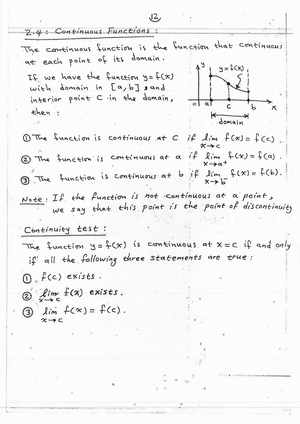 12
2.4: Continuous Functions:
The continuous function is the function that continuous
at each point of its domain.
If we have the function y=f(x)
with domain in [a,b], and
interior point C in the domain,
then:
y
y=f(x)
o a c b x
domain
① The function is continuous at C if lim f(x)=f(c).
x→c
② The function is continuous at a if lim f(x)=f(a).
x→a⁺
③ The function is continuous at b if lim f(x)=f(b).
x→b⁻
Note: If the function is not continuous at a point,
we say that this point is the point of discontinuity
Continuity test:
The function y=f(x) is continuous at x=c if and only
if all the following three statements are true:
① f(c) exists.
② lim f(x) exists.
x→c
③ lim f(x)=f(c).
x→c